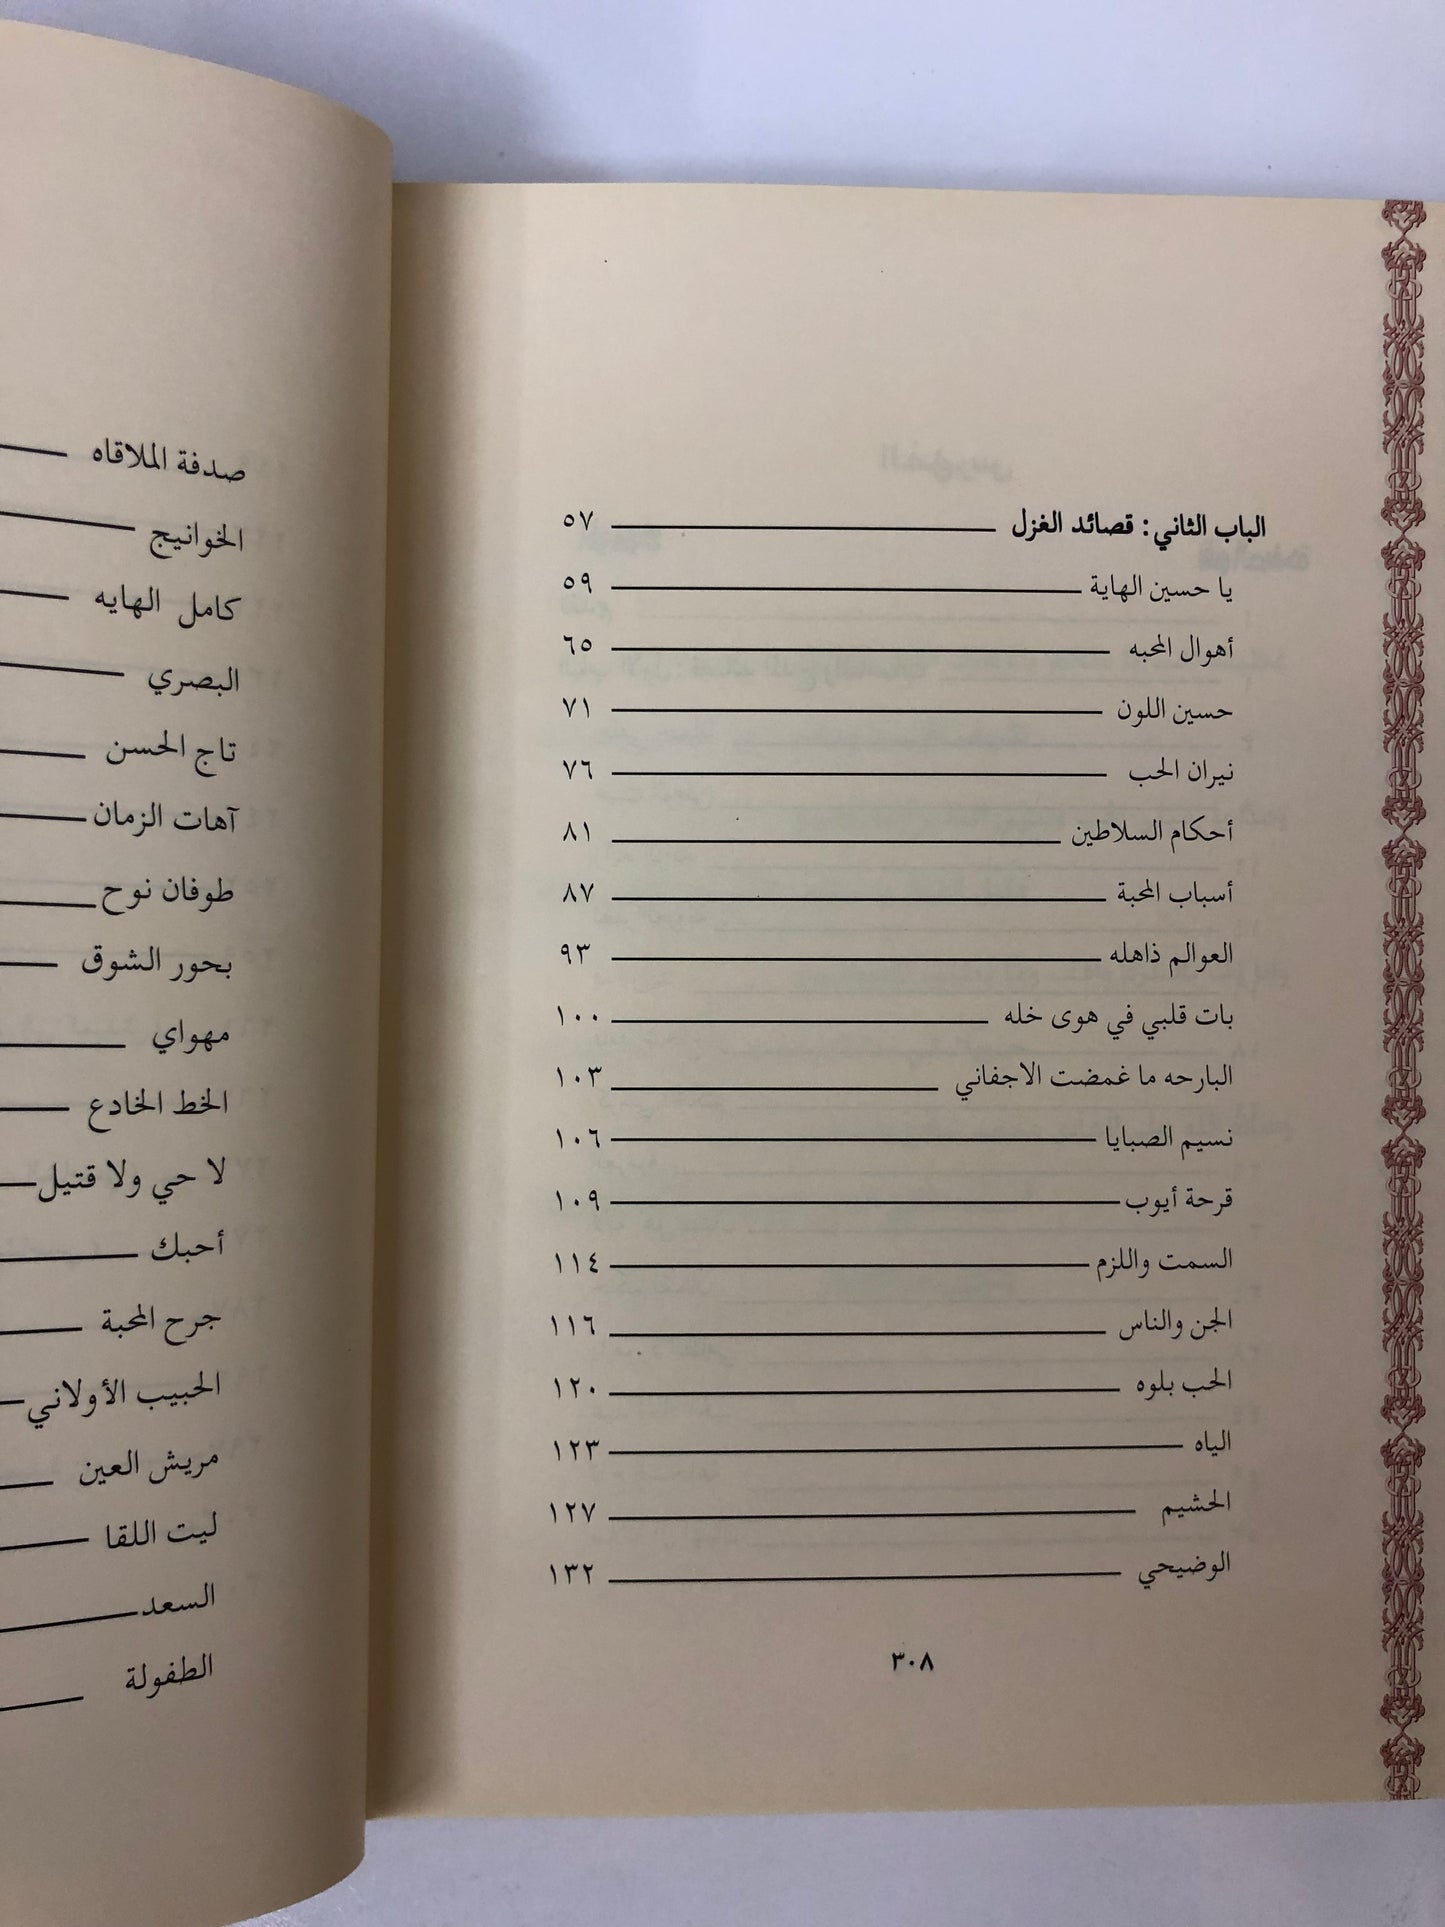 الباب الثاني: قصائد الغزل ٥٧
يا حسين الهاية ٥٩
أهوال المحبه ٦٥
حسين اللون ٧١
نيران الحب ٧٦
أحكام السلاطين ٨١
أسباب المحبة ٨٧
العوالم ذاهله ٩٣
بات قلبي في هوى خله ١٠٠
البارحه ما غمضت الاجفاني ١٠٣
نسيم الصبايا ١٠٦
قرحة أيوب ١٠٩
السمت واللزم ١١٤
الجن والناس ١١٦
الحب بلوه ١٢٠
الياه ١٢٣
الحشيم ١٢٧
الوضيحي ١٣٢
٣٠٨
صدفة الملاقاه
الخوانيج
كامل الهايه
البصري
تاج الحسن
آهات الزمان
طوفان نوح
بحور الشوق
مهواي
الخط الخادع
لا حي ولا قتيل
أحبك
جرح المحبة
الحبيب الأولاني
مريش العين
ليت اللقا
السعد
الطفولة